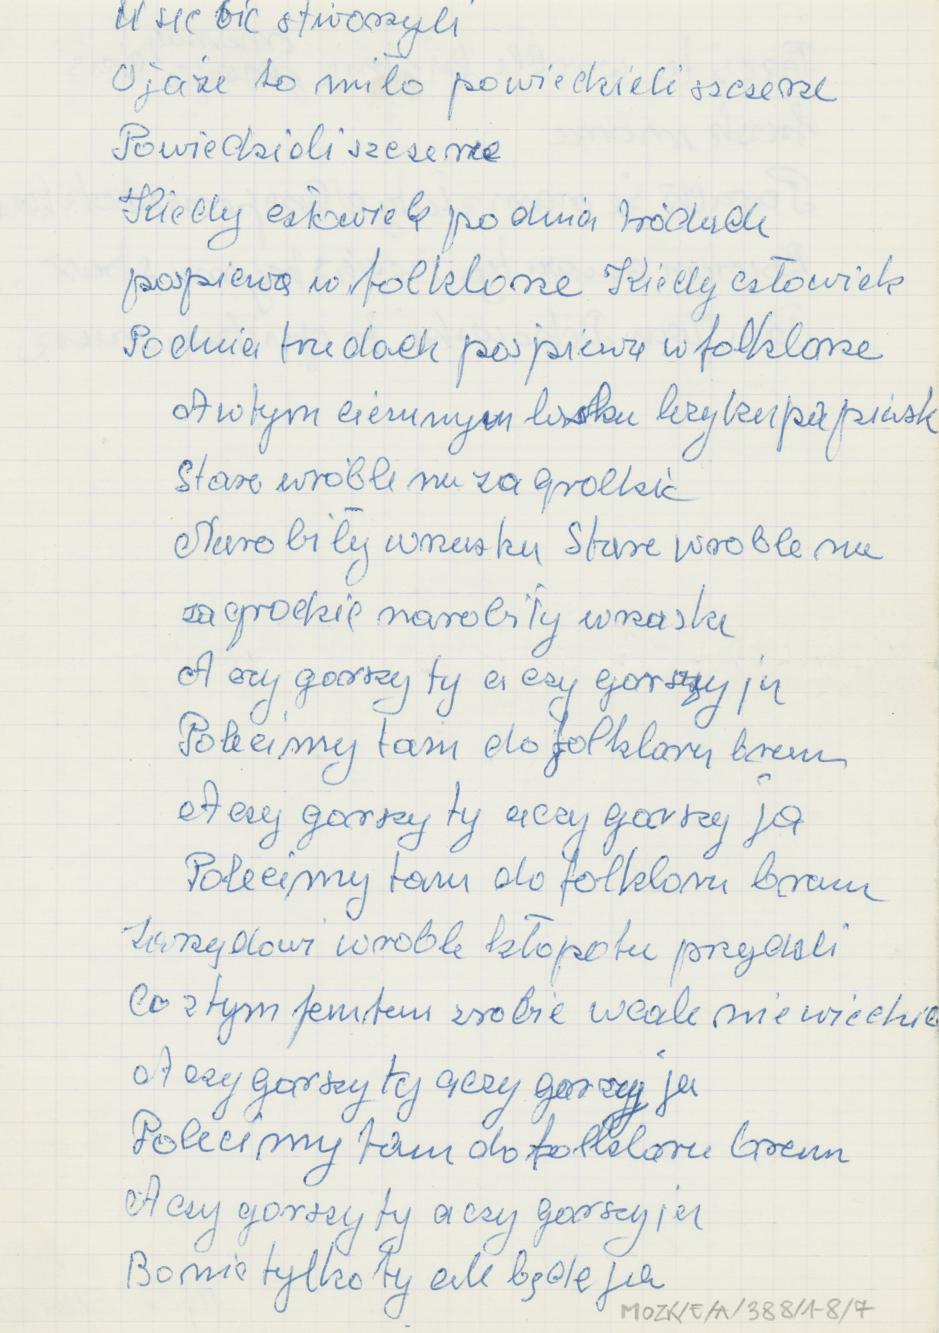 U się bić stworzyli
Ojaże to miło powiedzieli szczerze
Powiedzieli szczerze
Kiedy człowiek po dnia trudach
pośpiewa w folklorze Kiedy człowiek
Podnia trudach pośpiewa w folklorze
A w tym ciemnym lasku krzyknął
Stare wróble na zagrodzie
Narobiły wrzasku Stare wroble na
zagrodzie narobiły wrzasku
A czy gorszy ty a czy gorszy ja
Polecimy tam do folkloru bram
A czy gorszy ty a czy gorszy ja
Polecimy tam do folkloru bram
Zarządowi wroble kłopotu przydali
Co z tym fantem zrobić wcale nie wiedzie
A czy gorszy ty a czy gorszy ja
Polecimy tam do folkloru bram
A czy gorszy ty a czy gorszy ja
Bo nie tylko ty ale będę ja
MOZK/E/A/388/1-8/7